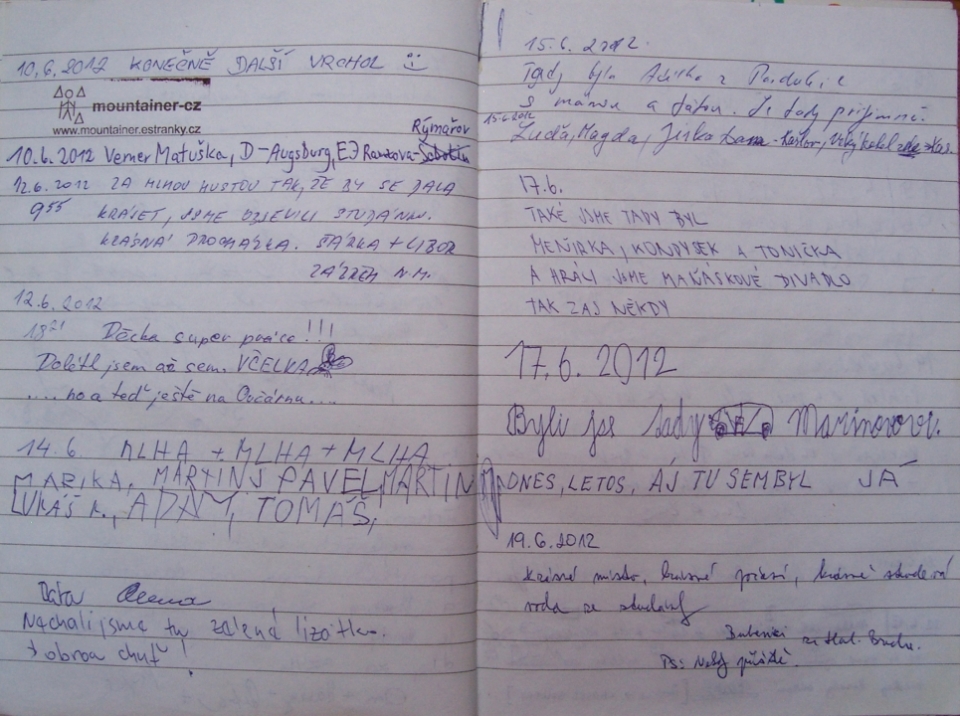 10.6.2012 KONEČNĚ DALŠÍ VRCHOL
mountainer-cz
www.mountainer.estranky.cz
Rýmařov
10.6.2012 Verner Matuška, D-Augsburg, EJ Rantova-Sobotín
12.6.2012 ZA MLHOU HUSTOU TAK, ŽE BY SE DALA
9⁵⁵ KRÁJET, JSME OBJEVILI STUDÁNKU.
KRÁSNÁ PROCHÁZKA. ŠÁRKA + LIBOR
N.M.
12.6.2012
18²¹ Děcka super práce!!!
Doletěl jsem až sem. VČELKA
....no a teď ještě na
14.6. MLHA + MLHA + MLHA
MARIKA, MARTINJ PAVEL, MARTIN
LUKÁŠ K., ADAM, TOMÁŠ,
Nechali jsme tu zelená lízátka.
dobrou chuť!
15.6.2012.
Tady byla z Pardubic
s mámou a tátou. Je tady příjemně.
15.6.2012
Luďa, Magda, Jirka
17.6.
TAKÉ JSME TADY BYL
MEŇIRKA, KONDYSEK A TONIČKA
A HRÁLI JSME MAŇÁSKOVÉ DIVADLO
TAK ZAJ NĚKDY
17.6.2012
Byli jse tady
DNES, LETOS, AJ TU SEMBYL JÁ
19.6.2012
Krásné místo, krásné počasí, krásně studená
voda ze studánky
PS: